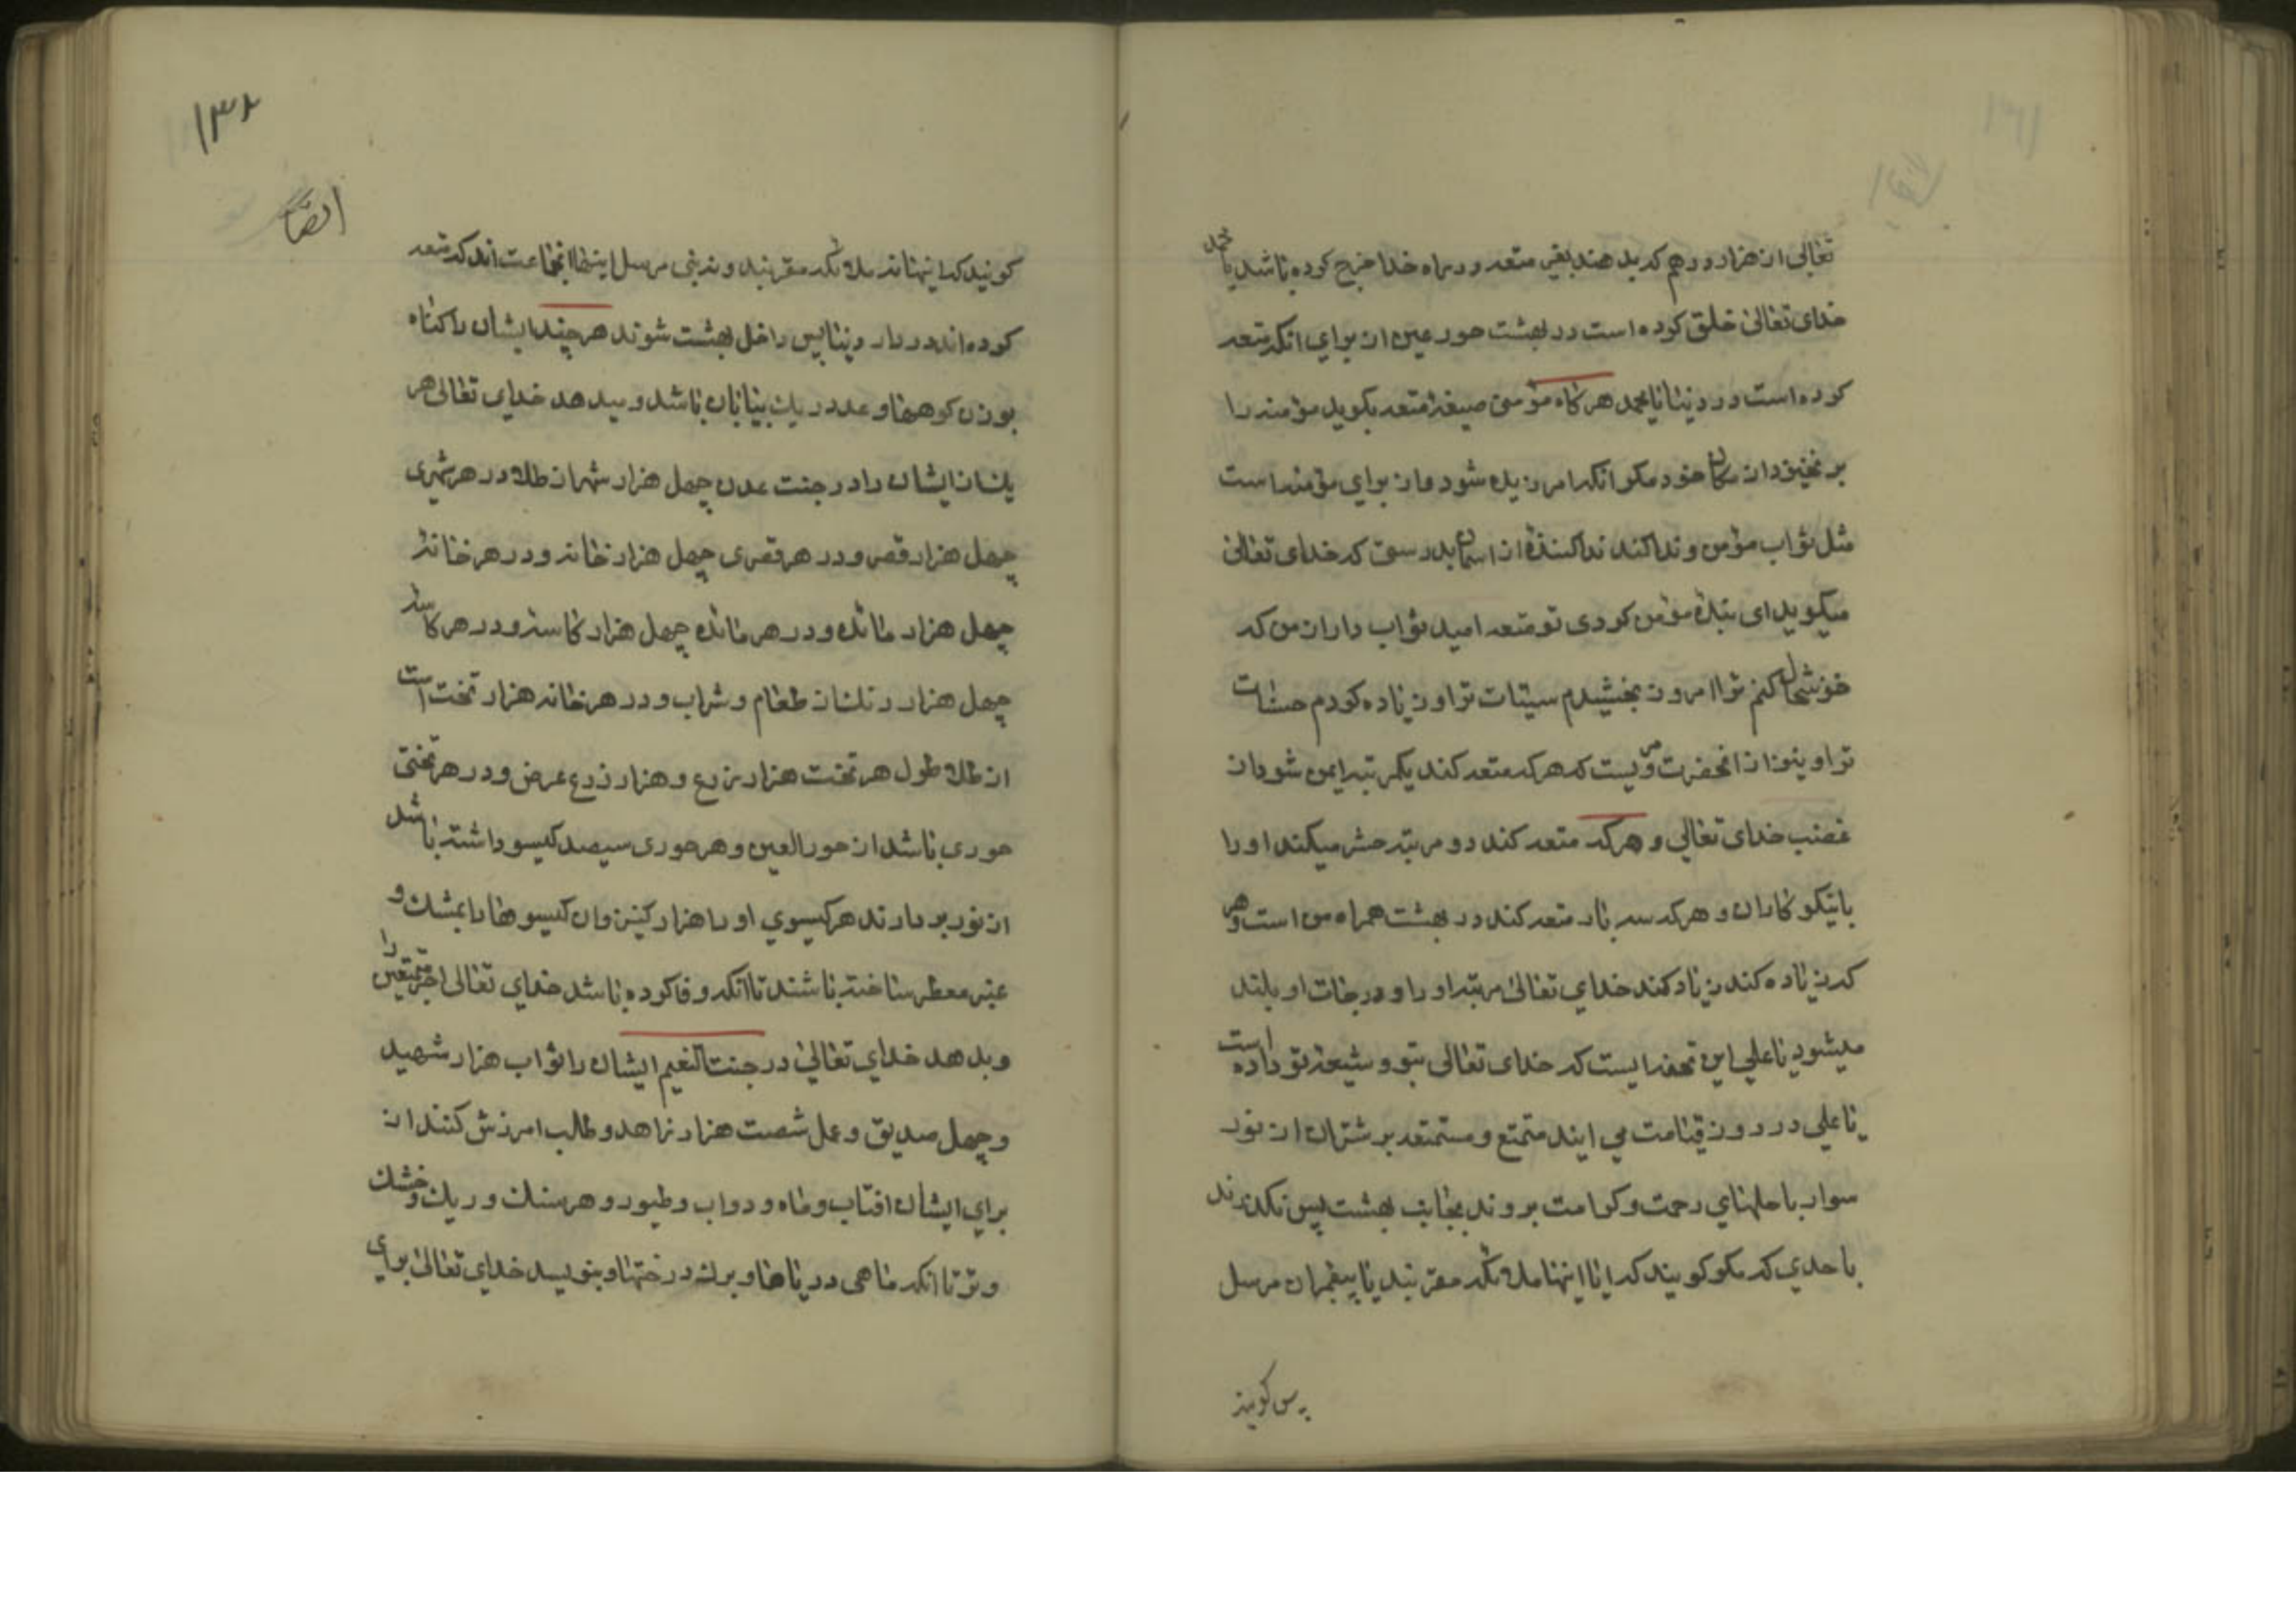 تعالی از هزار درهم که بدهند بغیر متعه در راه خدا خرج کرده باشد یا محمد
خدای تعالی خلق کرده است در بهشت حور عین از برای آنکه متعه
کرده است در دنیا یا محمد هر کاه مؤمنی صیغهٔ متعه بکوید مؤمنه را
بر نخیزد از مکان خود مکر آنکه آمرزیده شود و از برای مؤمنه است
مثل ثواب مؤمن و ندا کند ندا کنندهٔ از آسمان بدرستی که خدای تعالی
میکوید ای بندهٔ مؤمن کردی تو متعه امید ثواب دار از من که
خوشحال کنم ترا امروز بخشیدم سیئات ترا و زیاده کردم حسنات
ترا و نیز از آنحضرت مرویست که هر که متعه کند یکمرتبه ایمن شود از
غضب خدای تعالی و هر که متعه کند دو مرتبه حشر میکند او را
با نیکو کاران و هر که سه بار متعه کند در بهشت همراه من است و هر
که زیاده کند زیاد کند خدای تعالی مرتبه او را و درجات او بلند
میشود یا علی این تحفه ایست که خدای تعالی بتو و شیعهٔ تو داده است
یا علی در روز قیامت می آیند متمتع و مستمتعه بر شتران از نور
سوار با حلهای رحمت و کرامت بروند بجانب بهشت پس نکذرند
با حدی که مکر کویند که آیا اینها ملائکه مقربند یا پیغمبران مرسل
پس کویند
۱۳۲
ایضا
کویند که اینها نه ملائکه مقربند و نه نبی مرسل اینها آنجماعت اند که متعه
کرده اند در دار دنیا پس داخل بهشت شوند هر چند ایشان را کناه
بوزن کوهها و عدد ریک بیابان باشد و میدهد خدای تعالی هر
یک از ایشان را در جنت عدن چهل هزار شهر از طلا و در هر شهری
چهل هزار قصر و در هر قصری چهل هزار خانه و در هر خانهٔ
چهل هزار مائده و در هر مائده چهل هزار کاسه و در هر کاسهٔ
چهل هزار رنک از طعام و شراب و در هر خانه هزار تخت است
از طلا طول هر تخت هزار ذرع و هزار ذرع عرض و در هر تختی
حوری باشد از حور العین و هر حوری سیصد کیسو داشته باشد
از نور بردارند هر کیسوی او را هزار کنیز و آن کیسوها را بمشک و
عنبر معطر ساخته باشند تا آنکه وفا کرده باشد خدای تعالی اجر متمتعین را
و بدهد خدای تعالی در جنت النعیم ایشان را ثواب هزار شهید
و چهل صدیق و عمل شصت هزار زاهد و طالب آمرزش کنند از
برای ایشان آفتاب و ماه و دواب و طیور و هر سنک و ریک و خشک
و تر تا آنکه ماهی دریاها و برک درختها و بنویسد خدای تعالی برای